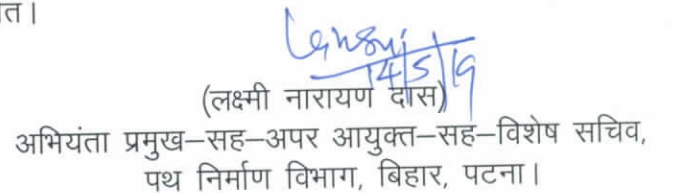 त।
14/5/19
(लक्ष्मी नारायण दास)
अभियंता प्रमुख–सह–अपर आयुक्त–सह–विशेष सचिव,
पथ निर्माण विभाग, बिहार, पटना।